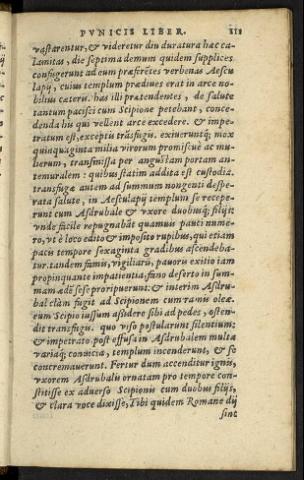 PVNICIS LIBER. 218
vastarentur, & videretur diu duratura hæc ca-
lamitas, die septima demum quidem supplices
confugerunt ad eum præferētes verbenas Aescu
lapij, cuius templum prædiues erat in arce no-
bilius cæteris. has illi prætendentes, de salute
tantum pacisci cum Scipione petebant, conce-
denda his qui vellent arce excedere. & impe-
tratum est, exceptis trāsfugis. exiueruntq; mox
quinquaginta milia virorum promiscuè ac mu-
lierum, transmissa per angustam portam an-
temuralem: quibus statim addita est custodia.
transfugæ autem ad summum nongenti despe-
rata salute, in Aesculapij templum se recepe-
runt cum Asdrubale & vxore duobusq; filijs
vnde facile repugnabāt quamuis pauci nume-
ro, vt è loco edito & imposito rupibus, qui etiam
pacis tempore sexaginta gradibus ascendeba-
tur. tandem famis, vigiliarū, pauoris exitio iam
propinquante impatientia, fano deserto in sum-
mam ædē sese proripuerunt: & interim Asdru-
bal clàm fugit ad Scipionem cum ramis oleæ.
eum Scipio iussum assidere sibi ad pedes, osten-
dit transfugis. quo viso postularunt silentium:
& impetrato post effusa in Asdrubalem multa
variaq; conuicia, templum incenderunt, & se
concremauerunt. Fertur dum accenditur ignis,
vxorem Asdrubalis ornatam pro tempore con-
stitisse ex aduerso Scipionis cum duobus filijs,
& clara voce dixisse, Tibi quidem Romane dij
sint